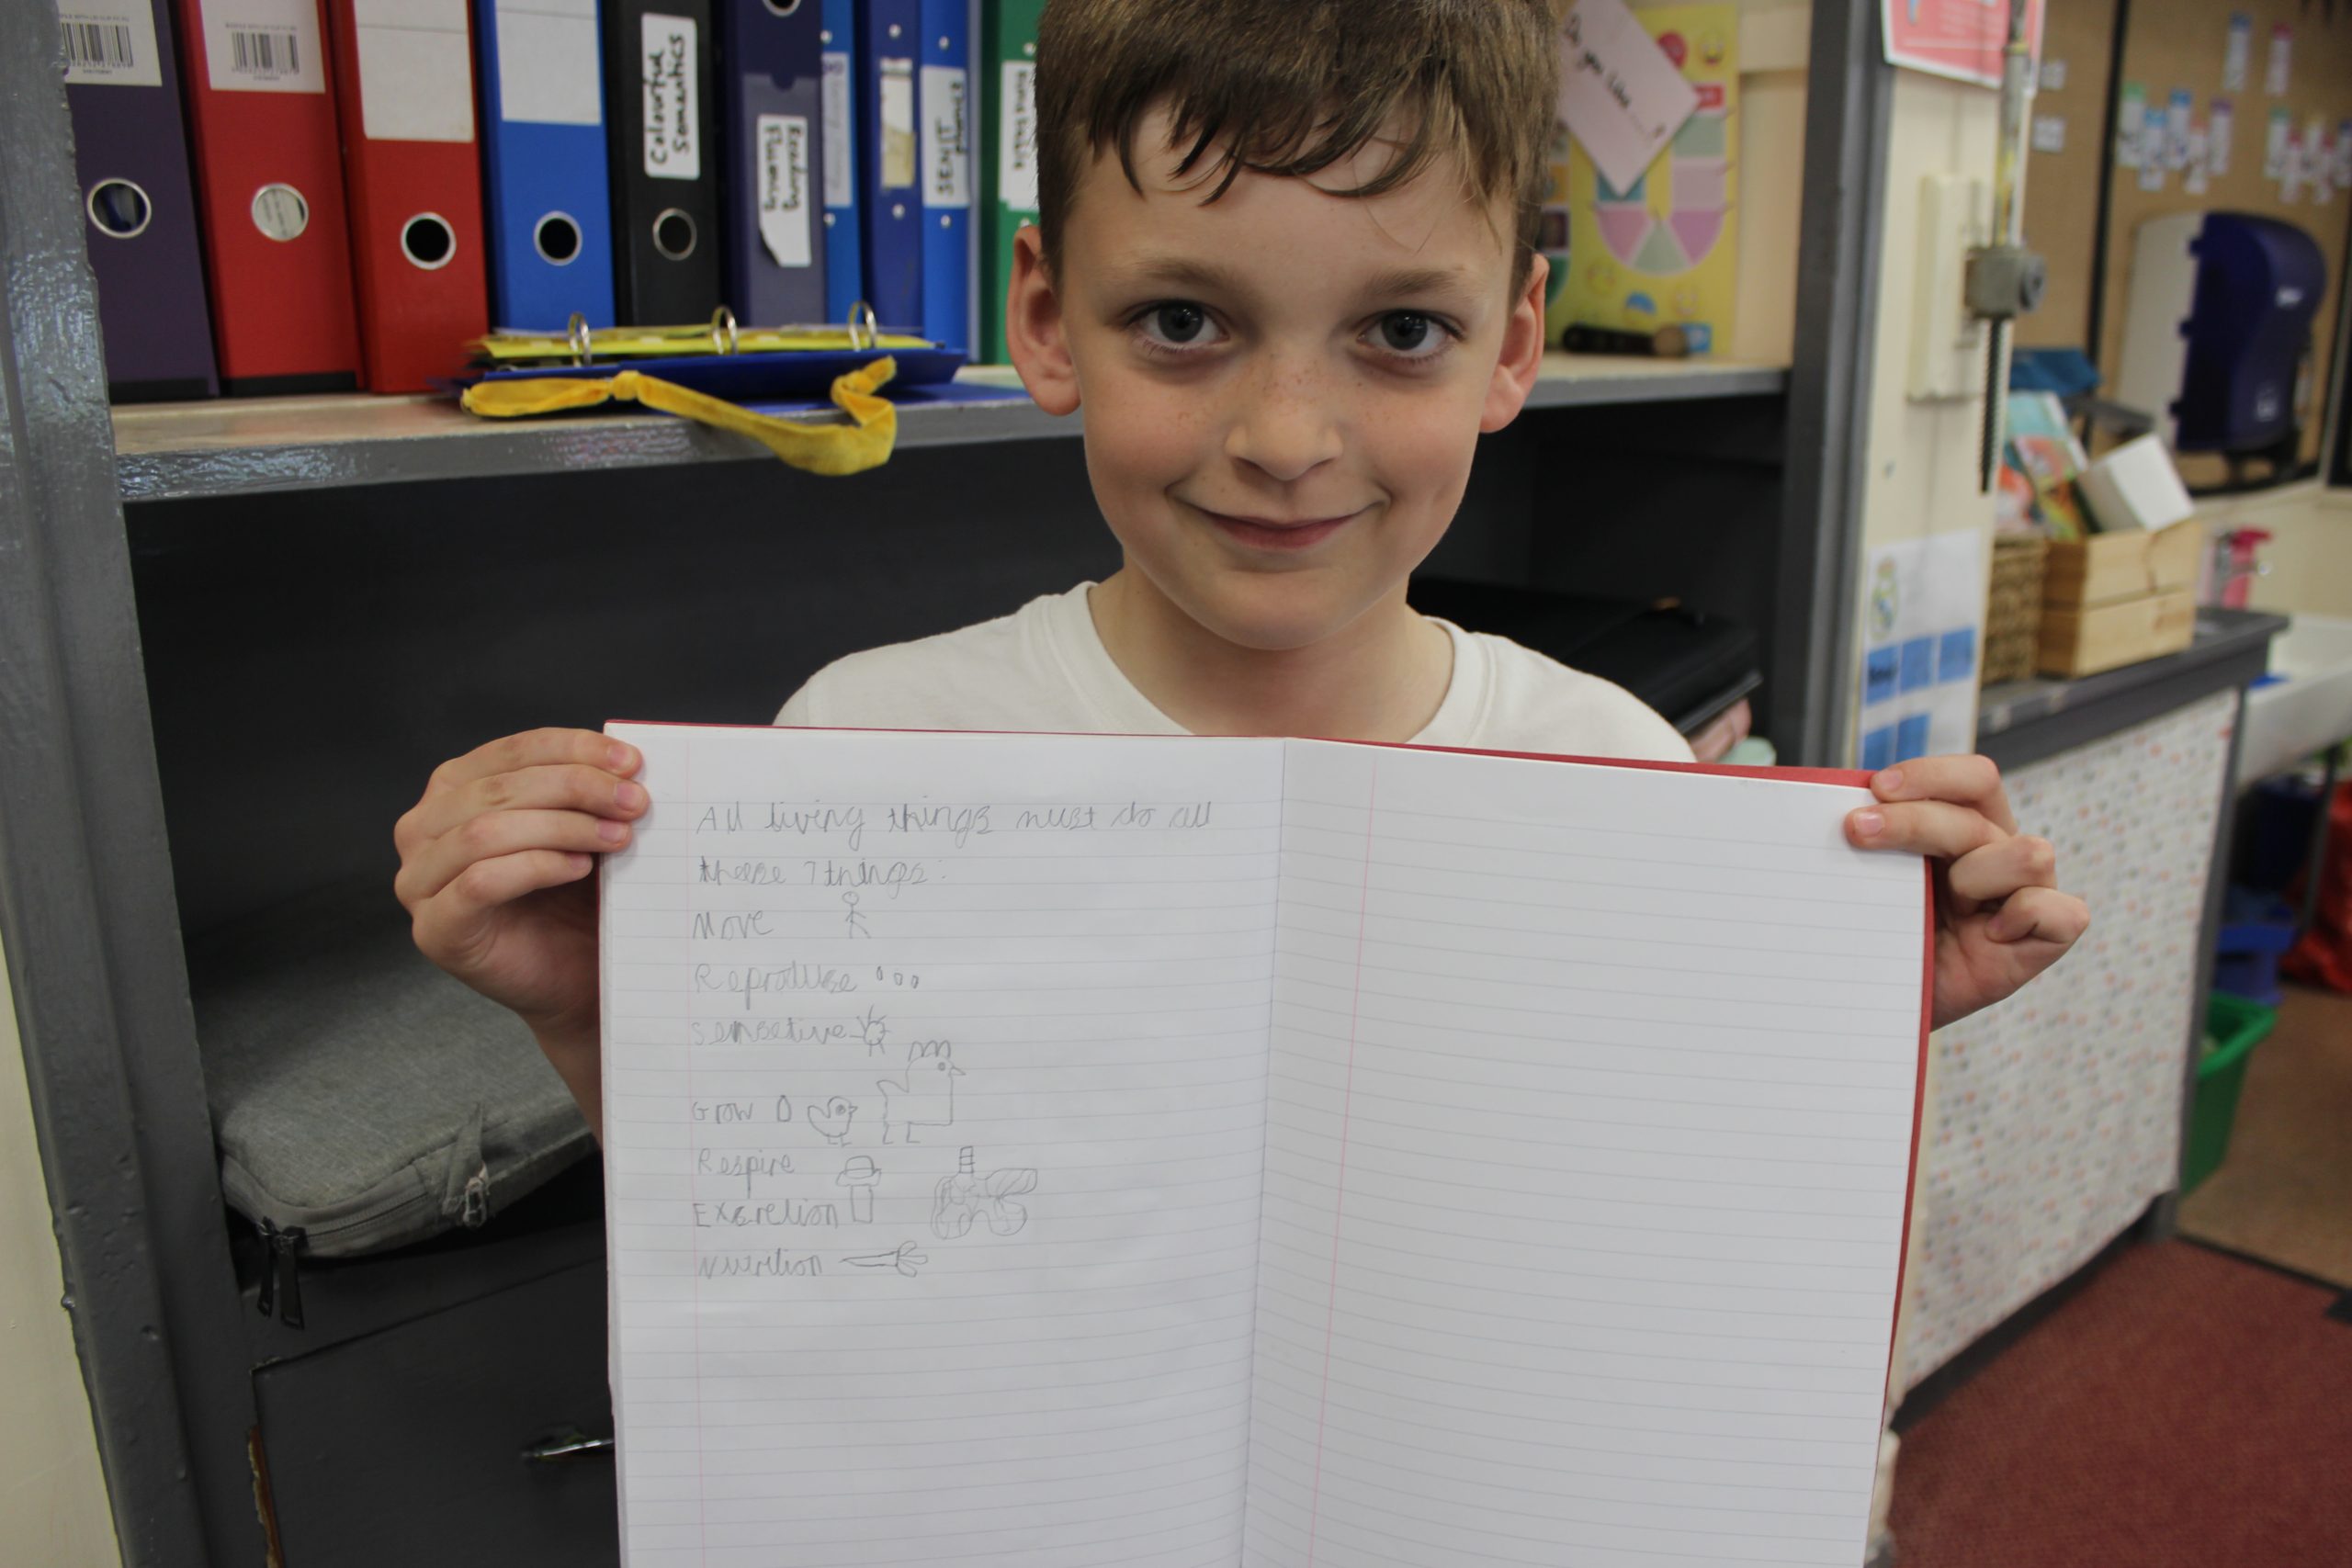 Colourful
Semantics
Tracking
SENIT
Do you like......?
All living things must do all
theese 7 things:
Move
Reproduse
Sensetive
Grow
Respire
Excretion
Nutrition